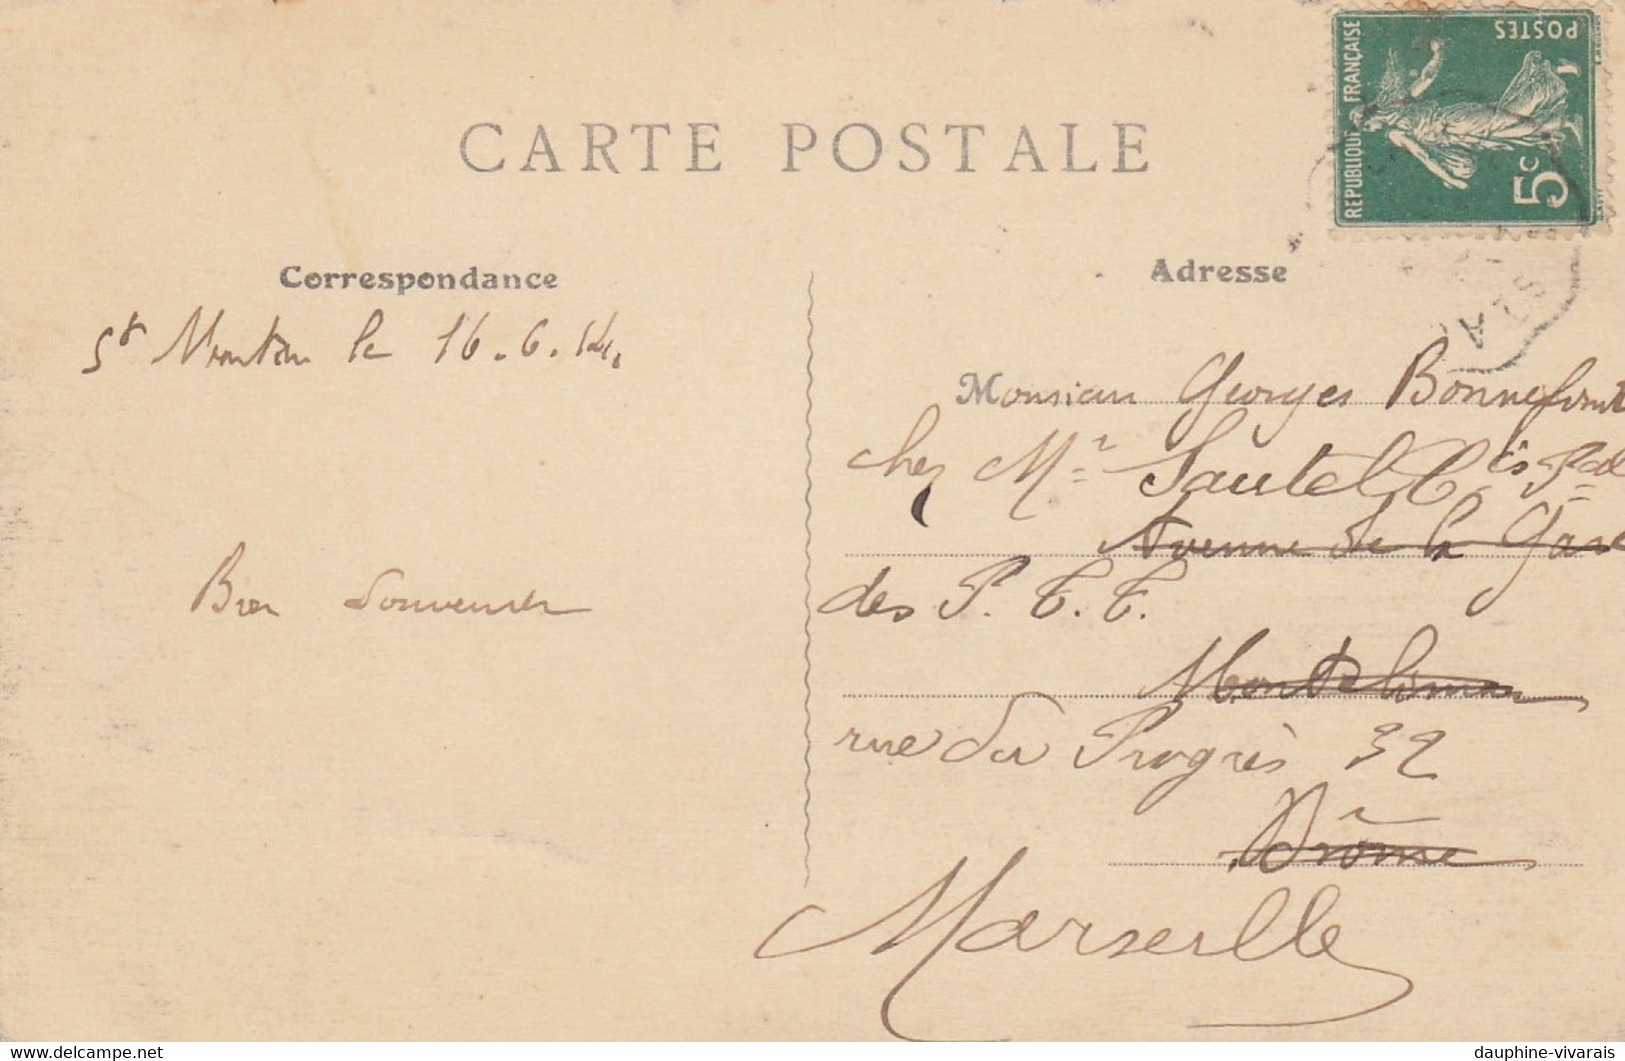 CARTE POSTALE
RÉPUBLIQUE FRANÇAISE
POSTES
5c
Correspondance
Adresse
St Montan le 16.6.14.
Monsieur Georges Bonnefont
chez Mr Sautel
Avenue de la Gare
des P. T. T.
Bon Souvenir
Montélimar
rue du Progrès 32
Drôme
Marseille
dauphine-vivarais